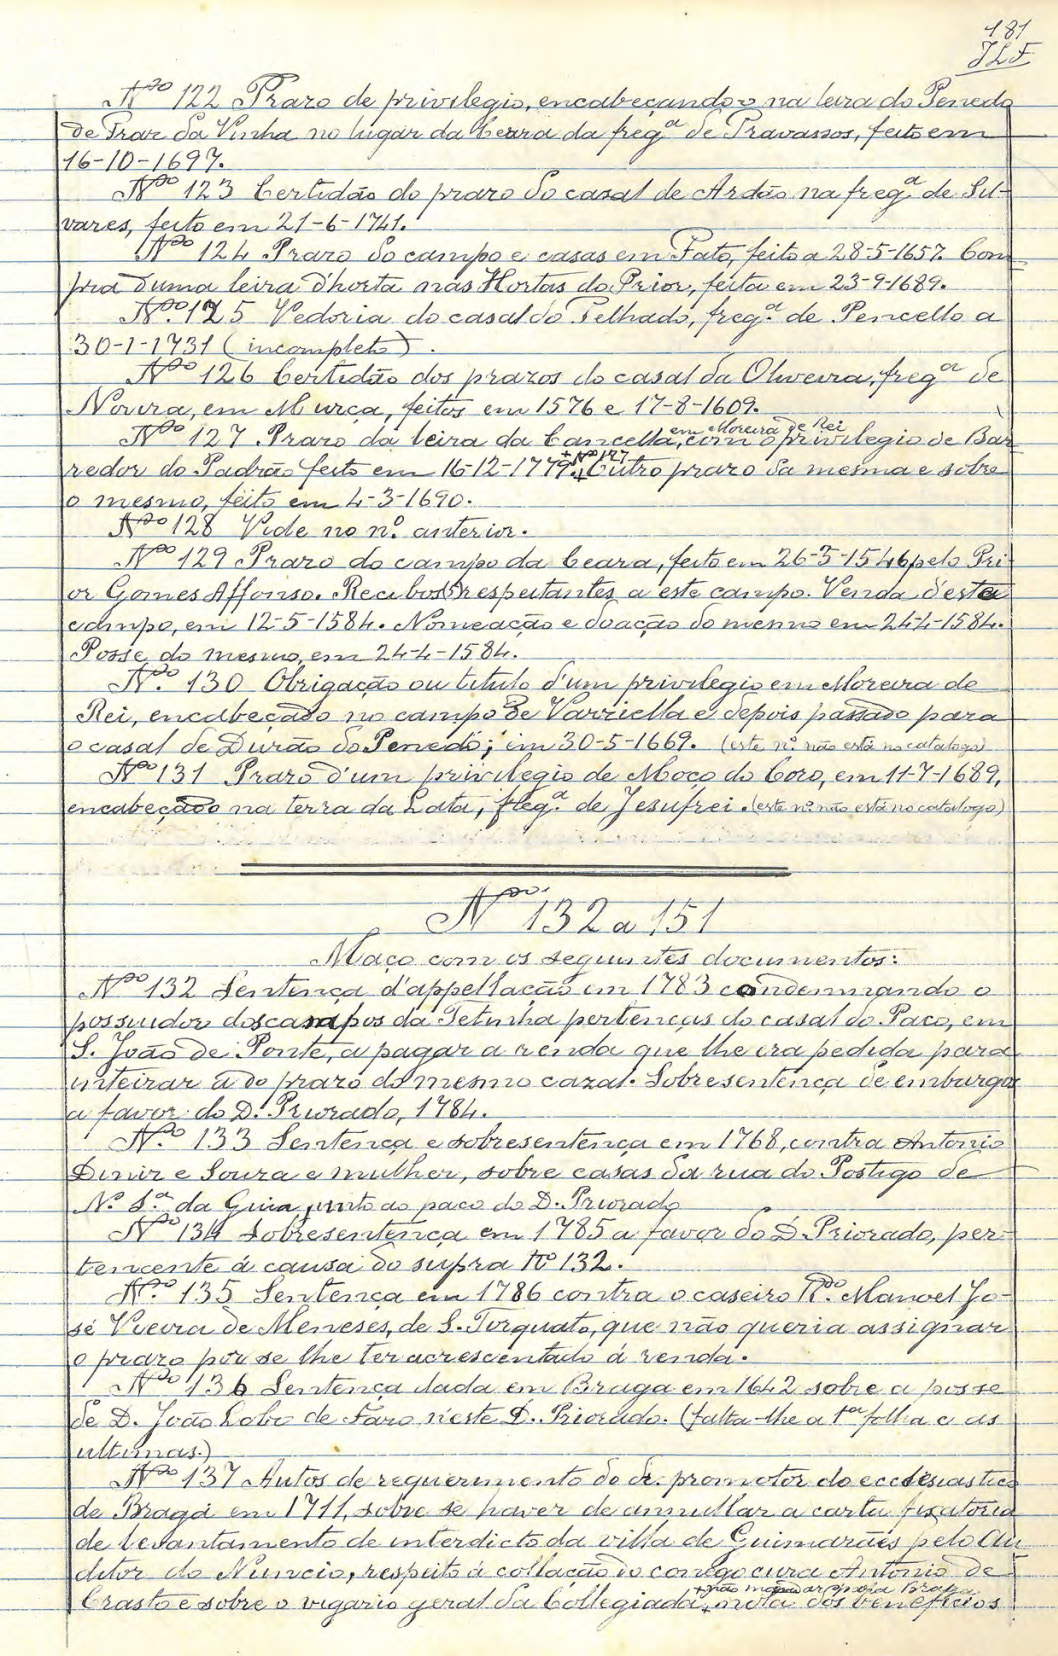 181
JLF
Nº 122 Prazo de privilegio, encabeçando-o na leira do Penedo
de Traz da Vinha no lugar da Ceara da fregª de Travassos, feito em
16-10-1697.
Nº 123 Certidão do prazo do casal de Ardão na fregª de Sil-
vares, feito em 21-6-1741.
Nº 124 Prazo do campo e casas em Fato, feito a 28-5-1657. Com-
pra d'uma leira d'horta nas Hortas do Prior, feita em 23-9-1689.
Nº 125 Vedoria do casal do Telhado, fregª de Pencello a
30-1-1731 (incompleto).
Nº 126 Certidão dos prazos do casal da Oliveira, fregª de
Noura, em Murça, feitos em 1576 e 17-8-1609.
em Moreira de Rei
Nº 127 Prazo da leira da Cancella, com o privilegio de Bar-
+ Nº 127
redor do Padrão feito em 16-12-1779.+ Outro prazo da mesma e sobre
o mesmo, feito em 4-3-1690.
Nº 128 Vide no nº anterior.
Nº 129 Prazo do campo da Ceara, feito em 26-3-1546 pelo Pri-
or Gomes Affonso. Recibos respeitantes a este campo. Venda d'este
campo, em 12-5-1584. Nomeação e doação do mesmo em 24-4-1584.
Posse do mesmo, em 24-4-1584.
Nº 130 Obrigação ou titulo d'um privilegio em Moreira de
Rei, encabeçado no campo de Varziella e depois passado para
o casal de Durão do Penedo; em 30-5-1669. (este nº não está no catalogo)
Nº 131 Prazo d'um privilegio de Moço do Coro, em 11-7-1689,
encabeçado na terra da Lata, fregª de Jesufrei. (este nº não está no catalogo)
Nº 132 a 151
Maço com os seguintes documentos:
Nº 132 Sentença d'appellação em 1783 condemnando o
possuidor dos campos da Tetinha pertenças do casal do Paço, em
S. João de Ponte, a pagar a renda que lhe era pedida para
inteirar a do prazo do mesmo cazal. Sobresentença de embargos
a favor do D. Priorado, 1784.
Nº 133 Sentença e sobresentença em 1768, contra Antonio
Diniz e Souza e mulher, sobre casas da rua do Postigo de
Nº Sª da Guia, junto ao paço do D. Priorado
Nº 134 Sobresentença em 1785 a favor do D. Priorado, per-
tencente á causa do supra Nº 132.
Nº 135 Sentença em 1786 contra o caseiro Rdo. Manoel Jo-
sé Vieira de Meneses, de S. Torquato, que não queria assignar
o prazo por se lhe ter acrescentado á renda.
Nº 136 Sentença dada em Braga em 1642 sobre a posse
de D. João Lobo de Faro n'este D. Priorado. (falta-lhe a 1ª folha e as
ultimas.)
Nº 137 Autos de requerimento do dr. promotor do ecclesiastico
de Braga em 1711, sobre se haver de annullar a carta fixatoria
de levantamento de interdicto da villa de Guimarães pelo Au-
ditor do Nuncio, respeito á collação do conego cura Antonio de
+ não mandar para Braga
Crasto e sobre o vigario geral da Collegiada + nota dos beneficios